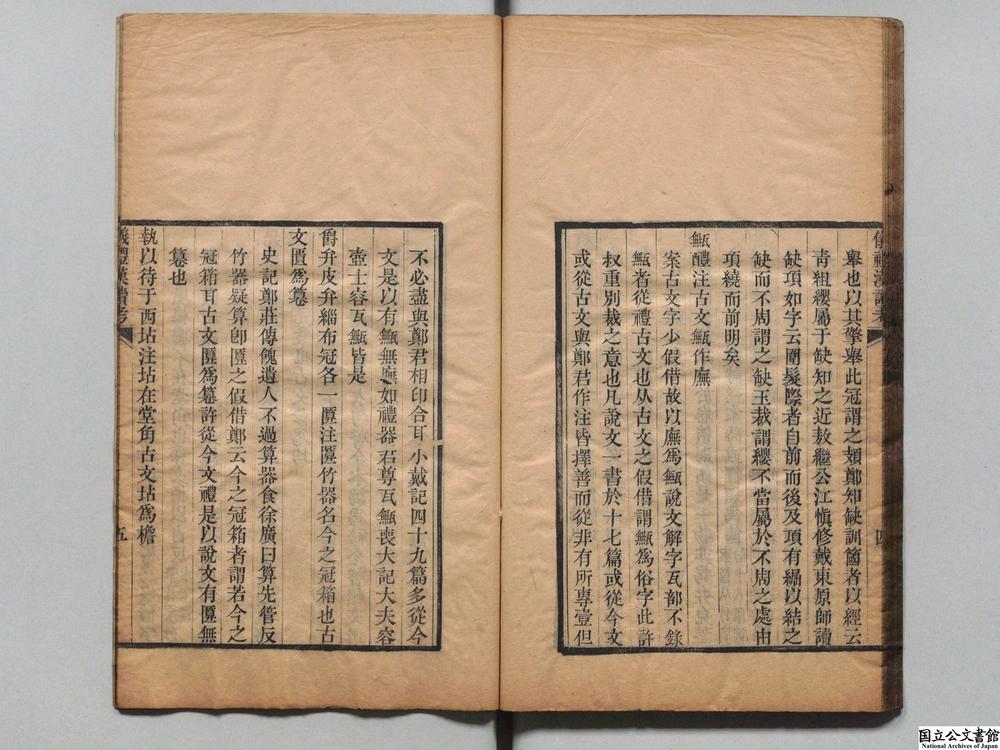 儀禮漢讀考
四
舉也以其擎舉此冠謂之頍鄭知缺訓箇者以經云
青組纓屬于缺知之近敖繼公江愼修戴東原師讀
缺項如字云圍髮際者自前而後及項有繘以結之
缺而不周謂之缺玉裁謂纓不當屬於不周之處由
項繞而前明矣
甒醴注古文甒作廡
案古文字少假借故以廡爲甒說文解字瓦部不錄
甒者從禮古文也从古文之假借謂甒爲俗字此許
叔重別裁之意也凡說文一書於十七篇或從今文
或從古文與鄭君作注皆擇善而從非有所專壹但
不必盡與鄭君相印合耳小戴記四十九篇多從今
文是以有甒無廡如禮器君尊瓦甒喪大記大夫容
壺士容瓦甒皆是
爵弁皮弁緇布冠各一匴注匴竹器名今之冠箱也古
文匴爲篹
史記鄭莊傳餽遺人不過算器食徐廣曰算先管反
竹器疑算卽匴之假借鄭云今之冠箱者謂若今之
冠箱耳古文匴爲篹許從今文禮是以說文有匴無
篹也
執以待于西坫注坫在堂角古文坫爲檐
儀禮漢讀考
五
国立公文書館
National Archives of Japan